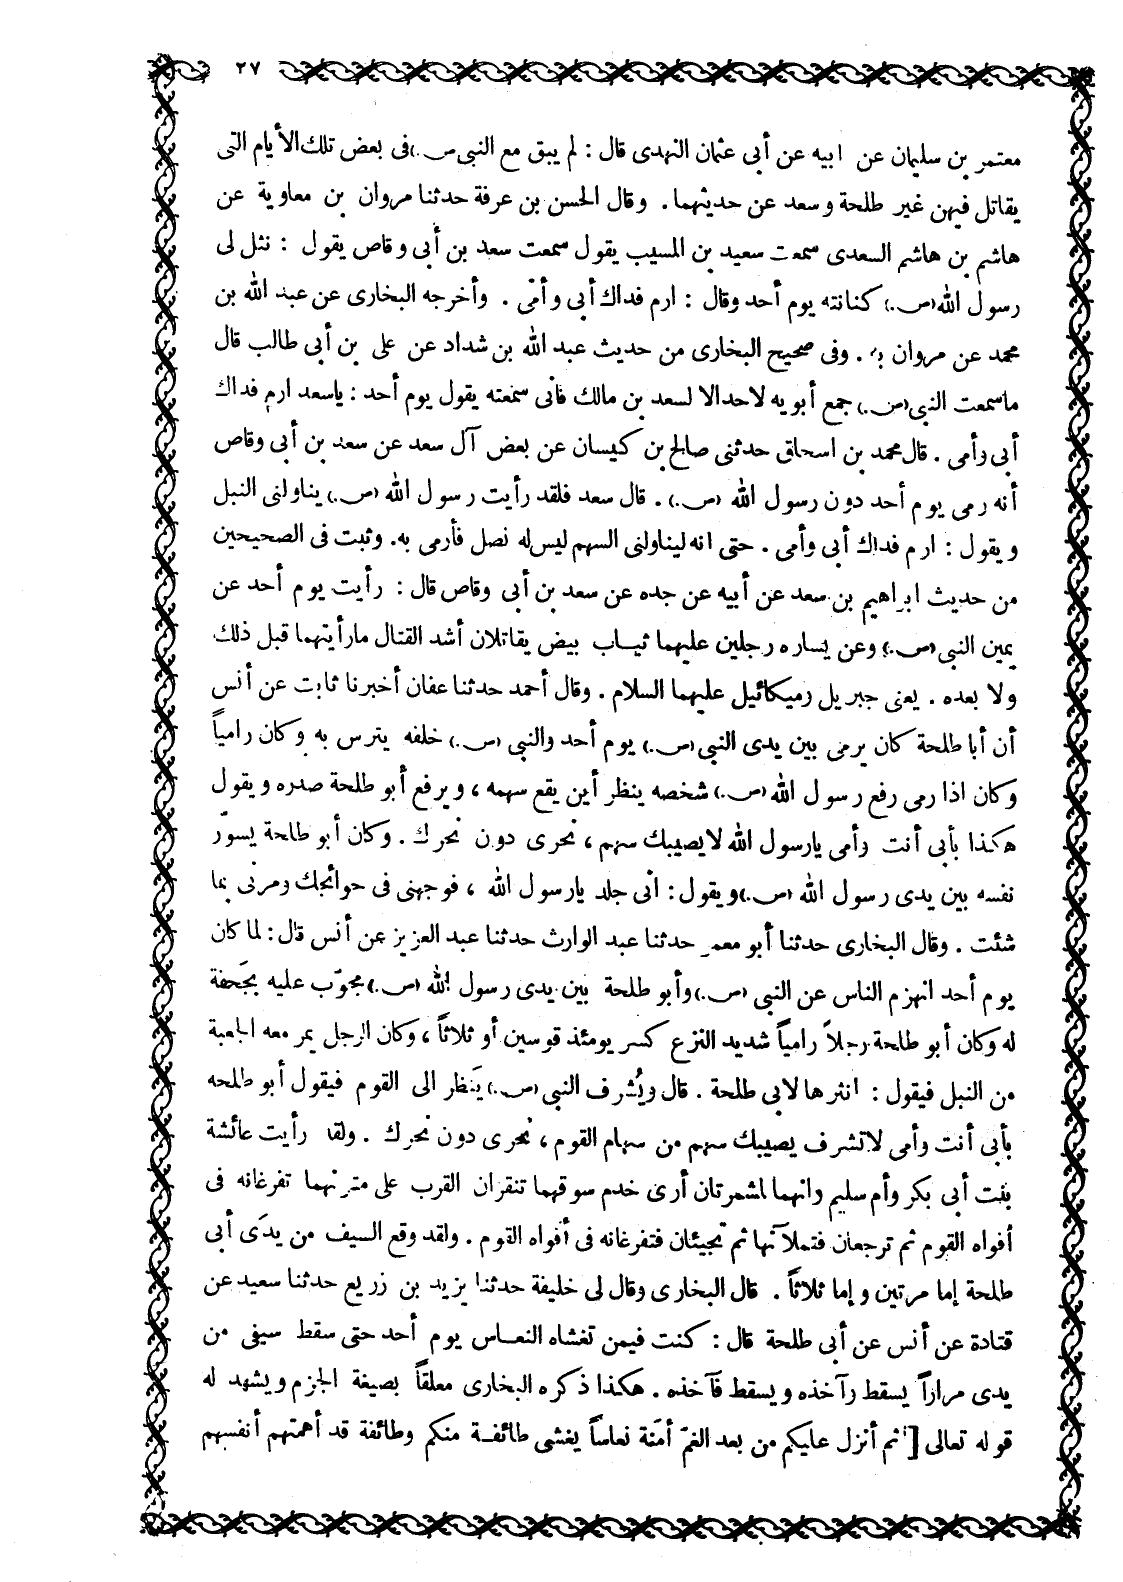 ٢٧
معتمر بن سليمان عن ابيه عن أبى عثمان النهدى قال : لم يبق مع النبى (ص.) فى بعض تلك الأيام التى
يقاتل فيهن غير طلحة وسعد عن حديثهما . وقال الحسن بن عرفة حدثنا مروان بن معاوية عن
هاشم بن هاشم السعدى سمعت سعيد بن المسيب يقول سمعت سعد بن أبى وقاص يقول : نثل لى
رسول الله (ص.) كنانته يوم أحد وقال : ارم فداك أبى وأمى . وأخرجه البخارى عن عبد الله بن
محمد عن مروان به . وفى صحيح البخارى من حديث عبد الله بن شداد عن على بن أبى طالب قال
ماسمعت النبى (ص.) جمع أبويه لاحد الا لسعد بن مالك فانى سمعته يقول يوم أحد : ياسعد ارم فداك
أبى وأمى . قال محمد بن اسحاق حدثنى صالح بن كيسان عن بعض آل سعد عن سعد بن أبى وقاص
أنه رمى يوم أحد دون رسول الله (ص.) . قال سعد فلقد رأيت رسول الله (ص.) يناولنى النبل
ويقول : ارم فداك أبى وأمى . حتى انه ليناولنى السهم ليس له نصل فأرمى به. وثبت فى الصحيحين
من حديث ابراهيم بن سعد عن أبيه عن جده عن سعد بن أبى وقاص قال : رأيت يوم أحد عن
يمين النبى (ص.) وعن يساره رجلين عليهما ثياب بيض يقاتلان أشد القتال مارأيتهما قبل ذلك
ولا بعده . يعنى جبريل وميكائيل عليهما السلام . وقال أحمد حدثنا عفان أخبرنا ثابت عن أنس
أن أبا طلحة كان يرمى بين يدى النبى (ص.) يوم أحد والنبى (ص.) خلفه يترس به وكان رامياً
وكان اذا رمى رفع رسول الله (ص.) شخصه ينظر أين يقع سهمه ، ويرفع أبو طلحة صدره ويقول
هكذا بأبى أنت وأمى يارسول الله لا يصيبك سهم ، نحرى دون نحرك . وكان أبو طلحة يسوّر
نفسه بين يدى رسول الله (ص.) ويقول : انى جلد يارسول الله ، فوجهنى فى حوائجك ومرنى بما
شئت . وقال البخارى حدثنا أبو معمر حدثنا عبد الوارث حدثنا عبد العزيز عن أنس قال : لما كان
يوم أحد انهزم الناس عن النبى (ص.) وأبو طلحة بين يدى رسول الله (ص.) مجوّب عليه بحَجفة
له وكان أبو طلحة رجلاً رامياً شديد النزع كسر يومئذ قوسين أو ثلاثاً ، وكان الرجل يمر معه الجعبة
من النبل فيقول : انثرها لابى طلحة . قال ويُشرف النبى (ص.) يَنظر الى القوم فيقول أبو طلحه
بأبى أنت وأمى لاتشرف يصيبك سهم من سهام القوم ، نحرى دون نحرك . ولقد رأيت عائشة
بنت أبى بكر وأم سليم وانهما لمشمرتان أرى خدم سوقهما تنقزان القرب على متونهما تفرغانه فى
أفواه القوم ثم ترجعان فتملآنها ثم تجيئان فتفرغانه فى أفواه القوم . ولقد وقع السيف من يدَى أبى
طلحة إما مرتين وإما ثلاثاً . قال البخارى وقال لى خليفة حدثنا يزيد بن زريع حدثنا سعيد عن
قتادة عن أنس عن أبى طلحة قال : كنت فيمن تغشاه النعاس يوم أحد حتى سقط سيفى من
يدى مراراً يسقط وآخذه ويسقط فآخذه . هكذا ذكره البخارى معلقاً بصيغة الجزم ويشهد له
قوله تعالى [ ثم أنزل عليكم من بعد الغمّ أمنَة نعاساً يغشى طائفة منكم وطائفة قد أهمتهم أنفسهم